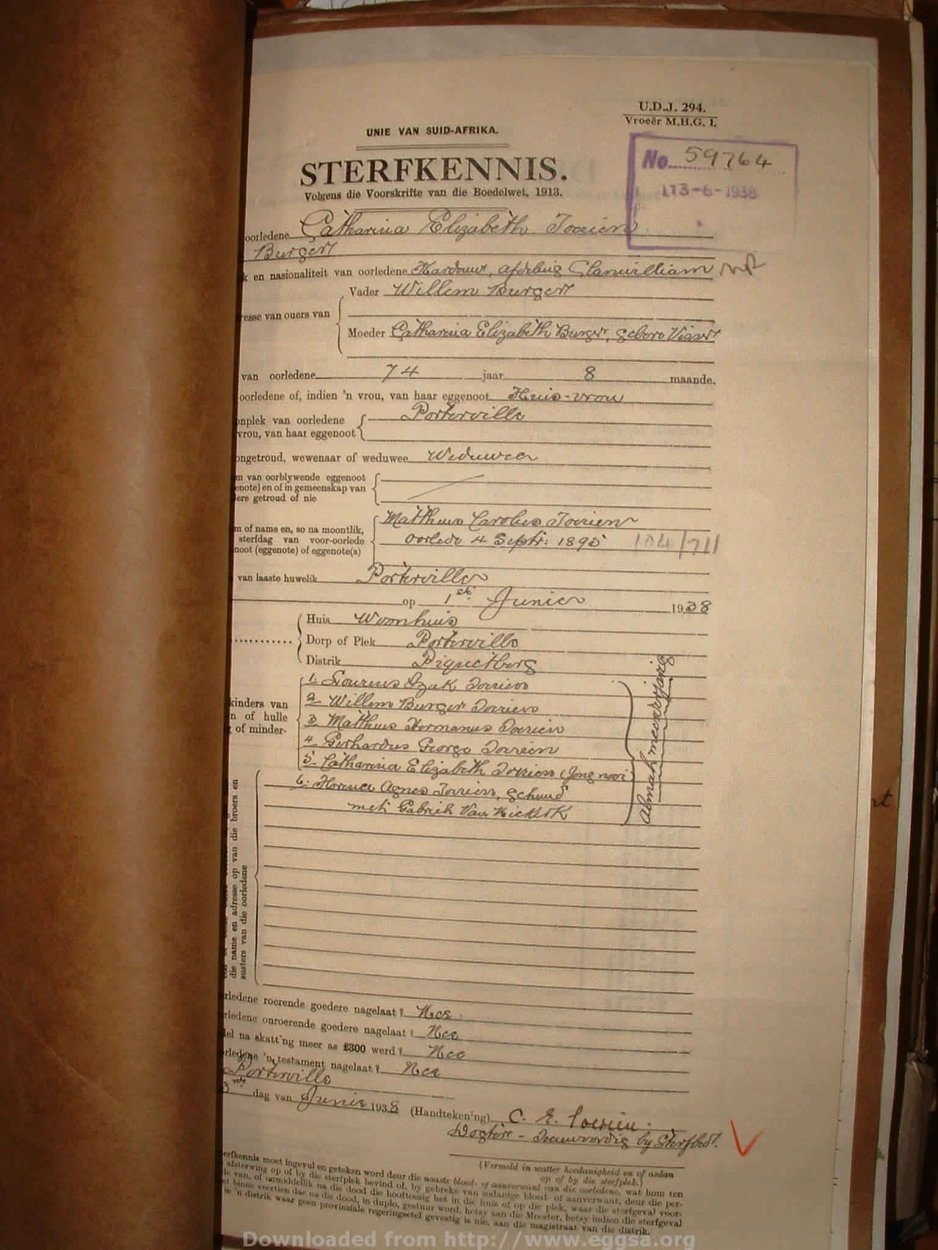 U.D.J. 294.
Vroeër M.H.G. I.
UNIE VAN SUID-AFRIKA.
No. 59764
13-6-1938
STERFKENNIS.
Volgens die Voorskrifte van die Boedelwet, 1913.
oorledene Catharina Elizabeth Toerien
Burger
k en nasionaliteit van oorledene Kardouw, afdeling Clanwilliam
Vader Willem Burger
resse van ouers van
Moeder Catharina Elizabeth Burger, gebore Visser
van oorledene 74 jaar 8 maande.
oorledene of, indien 'n vrou, van haar eggenoot Huis-vrou
onplek van oorledene Porterville
vrou, van haar eggenoot
ongetroud, wewenaar of weduwee Weduwee
m van oorblywende eggenoot
enote) en of in gemeenskap van
ere getroud of nie
m of name en, so na moontlik, Mattheus Carolus Toerien
sterfdag van voor-oorlede oorlede 4 Septr: 1895 104/711
noot (eggenote) of eggenote(s)
van laaste huwelik Porterville
op 1ste Junie 1938
Huis Woonhuis
Dorp of Plek Porterville
Distrik Piquetberg
1. Lourens Izak Toerien
kinders van 2. Willem Burger Toerien
n of hulle 3. Mattheus Hermanus Toerien
of minder- 4. Gerhardus George Toerien
5. Catharina Elizabeth Toerien (Jong nooi)
6. Florence Agnes Toerien, getroud
met Gabriel Van Niekerk
Almal meerderjarig
die name en adresse op van die broers en
susters van die oorledene
rledene roerende goedere nagelaat? Nee.
rledene onroerende goedere nagelaat? Nee
del na skatting meer as £300 werd? Nee
rledene 'n testament nagelaat? Nee
Porterville
3de dag van Junie 1938 (Handtekening) C. E. Toerien.
Dogter - Teenwoordig by Sterfbed.
(Vermeld in watter hoedanigheid en of asdan
op of by die sterfplek.)
erfkennis moet ingevul en geteken word deur die naaste bloed- of aanverwant van die oorledene, wat hom ten
afsterwing op of by die sterfplek bevind of, by gebreke van sodanige bloed- of aanverwant, deur die per-
le van, of onmiddellik na die dood die hooftoesig het in die huis of op die plek, waar die sterfgeval voor-
et binne veertien dae na die dood, in duplo, gestuur word, hetsy aan die Meester, hetsy indien die sterfgeval
in 'n distrik waar geen provinsiale regeringsetel gevestig is nie, aan die magistraat van die distrik.
Downloaded from http://www.eggsa.org